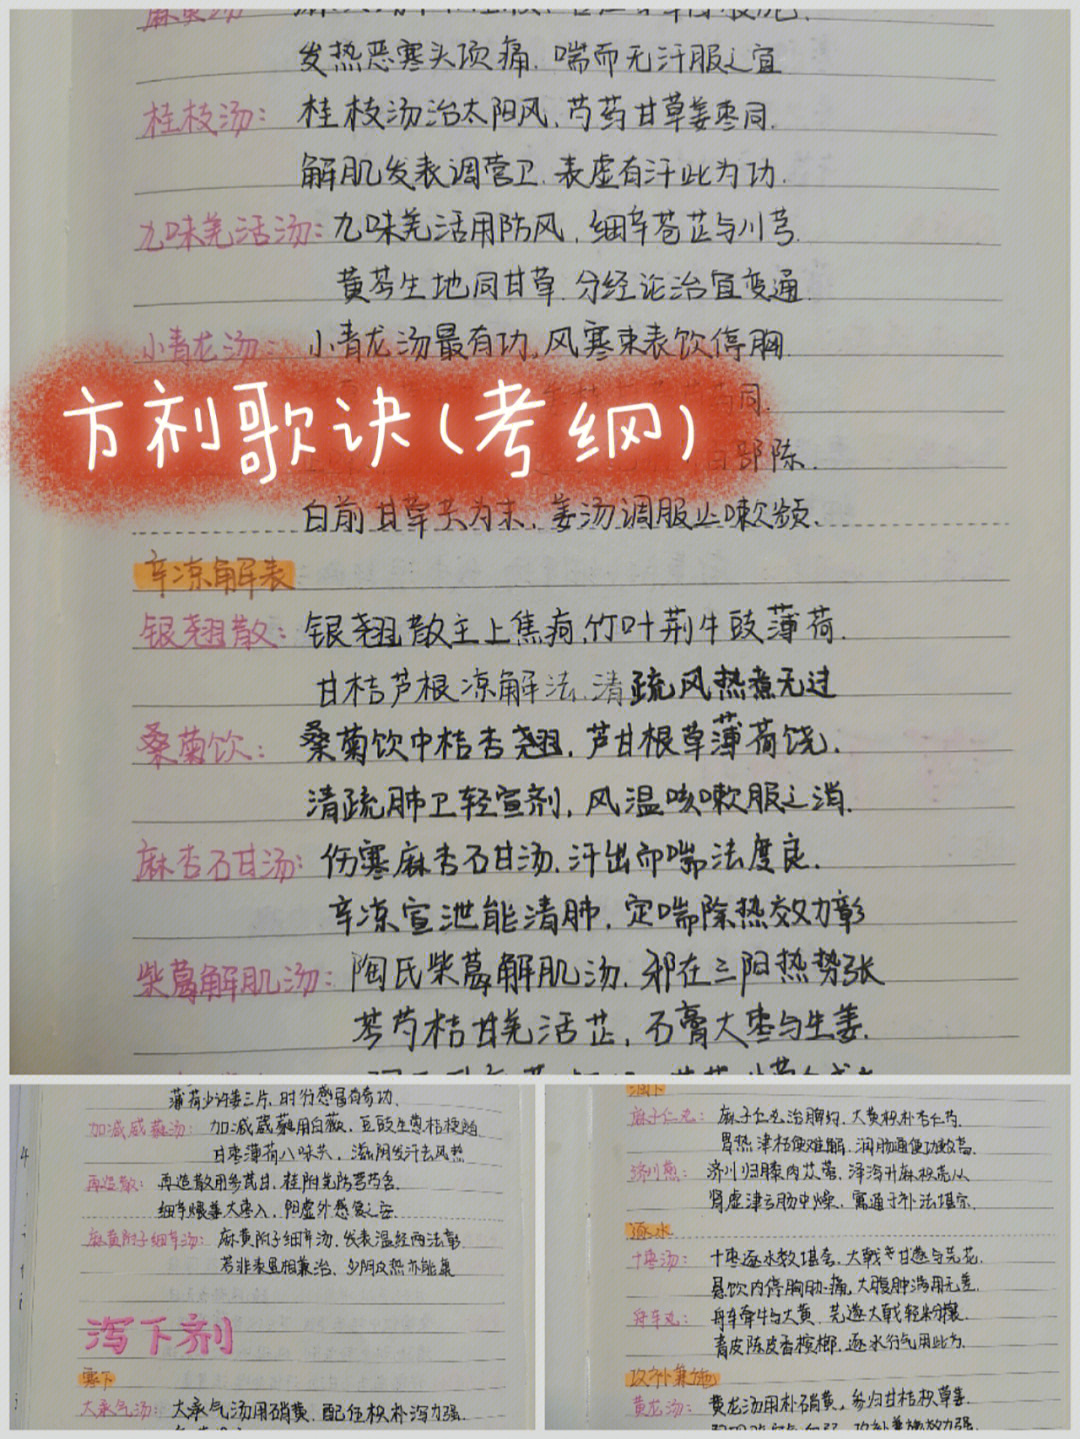 麻黄汤:
发热恶寒头项痛.喘而无汗服之宜
桂枝汤: 桂枝汤治太阳风.芍药甘草姜枣同.
解肌发表调营卫.表虚有汗此为功.
九味羌活汤: 九味羌活用防风,细辛苍芷与川芎.
黄芩生地同甘草.分经论治宜变通.
小青龙汤: 小青龙汤最有功,风寒束表饮停胸.
同.
方剂歌诀(考纲)
百部陈.
白前甘草共为末.姜汤调服止嗽频.
辛凉解表
银翘散: 银翘散主上焦疴,竹叶荆牛豉薄荷.
甘桔芦根凉解法.清疏风热煮无过
桑菊饮: 桑菊饮中桔杏翘.芦甘根草薄荷饶.
清疏肺卫轻宣剂,风温咳嗽服之消.
麻杏石甘汤: 伤寒麻杏石甘汤.汗出而喘法度良.
辛凉宣泄能清肺.定喘除热效力彰
柴葛解肌汤: 陶氏柴葛解肌汤.邪在三阳热势张
芩芍桔甘羌活芷,石膏大枣与生姜.
薄荷少许姜三片.时行感冒有奇功.
加减葳蕤汤: 加减葳蕤用白薇.豆豉生葱桔梗随
甘枣薄荷八味共.滋阴发汗去风热
再造散: 再造散用参芪甘.桂附羌防芎芍含.
细辛煨姜大枣入.阳虚外感食之安.
麻黄附子细辛汤: 麻黄附子细辛汤.发表温经两法彰.
若非表里相兼治.少阴反热亦能康
泻下剂
寒下
大承气汤: 大承气汤用硝黄.配伍枳朴泻力强.
润下
麻子仁丸: 麻子仁丸治脾约.大黄枳朴杏仁芍.
胃热津枯便难解.润肠通便功效高.
济川煎: 济川归膝肉苁蓉.泽泻升麻枳壳从
肾虚津亏肠中燥.寓通于补法堪宗
逐水
十枣汤: 十枣逐水效堪夸.大戟甘遂与芫花.
悬饮内停胸胁痛.大腹肿满用无差.
舟车丸: 舟车牵牛与大黄.芫遂大戟轻粉攘.
青皮陈皮香槟榔.逐水行气用此方.
攻补兼施
黄龙汤: 黄龙汤用朴硝黄.参归甘桔枳草姜.